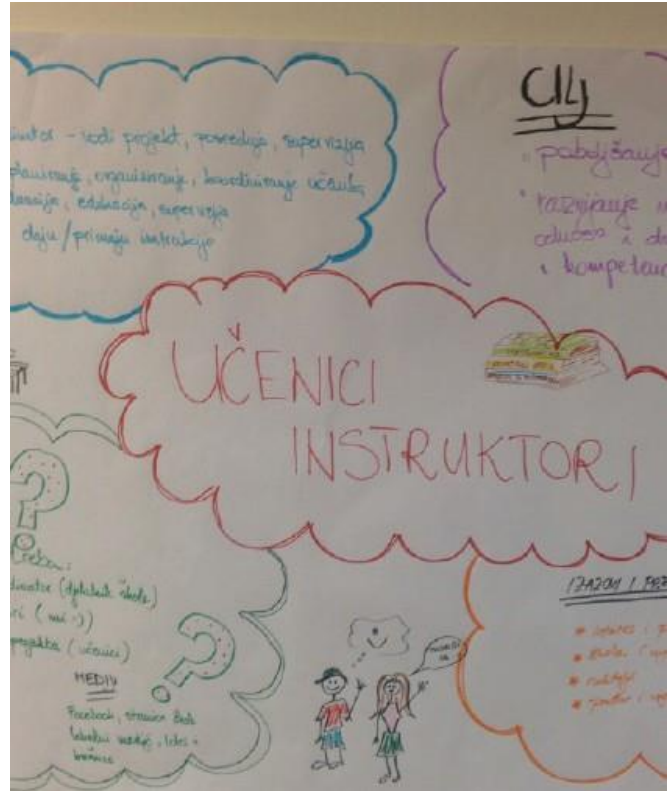 vodi projekt, posreduje, supervizija
planiranje, organiziranje, koordiniranje učenika
edukacija, supervizija
daju/primaju instrukcije
CILJ
poboljšanje
razvijanje
odnosa i
kompetenc
UČENICI
INSTRUKTORI
treba:
(djelatnik škole)
(mi :))
projekta (učenici)
MEDIJI
Facebook, stranice škole
lokalni mediji, letci i
IZAZOVI I
interes i
škola i
roditelji
prostor i